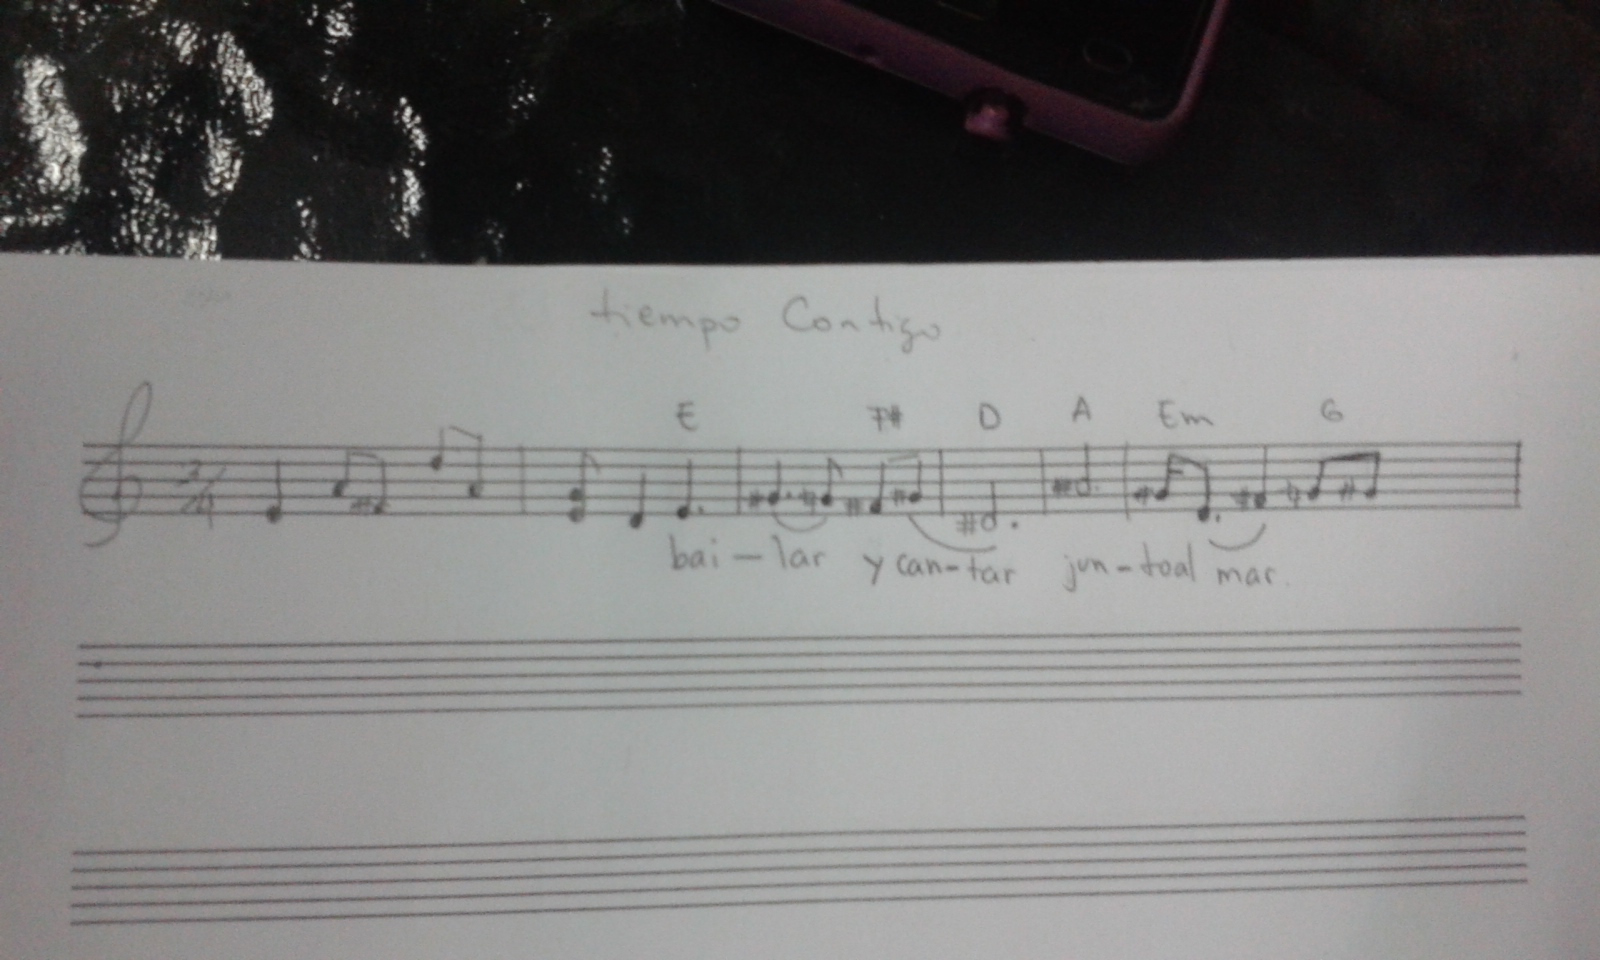 tiempo Contigo
E F# D A Em G
3/4
bai-lar y can-tar jun-toal mar.